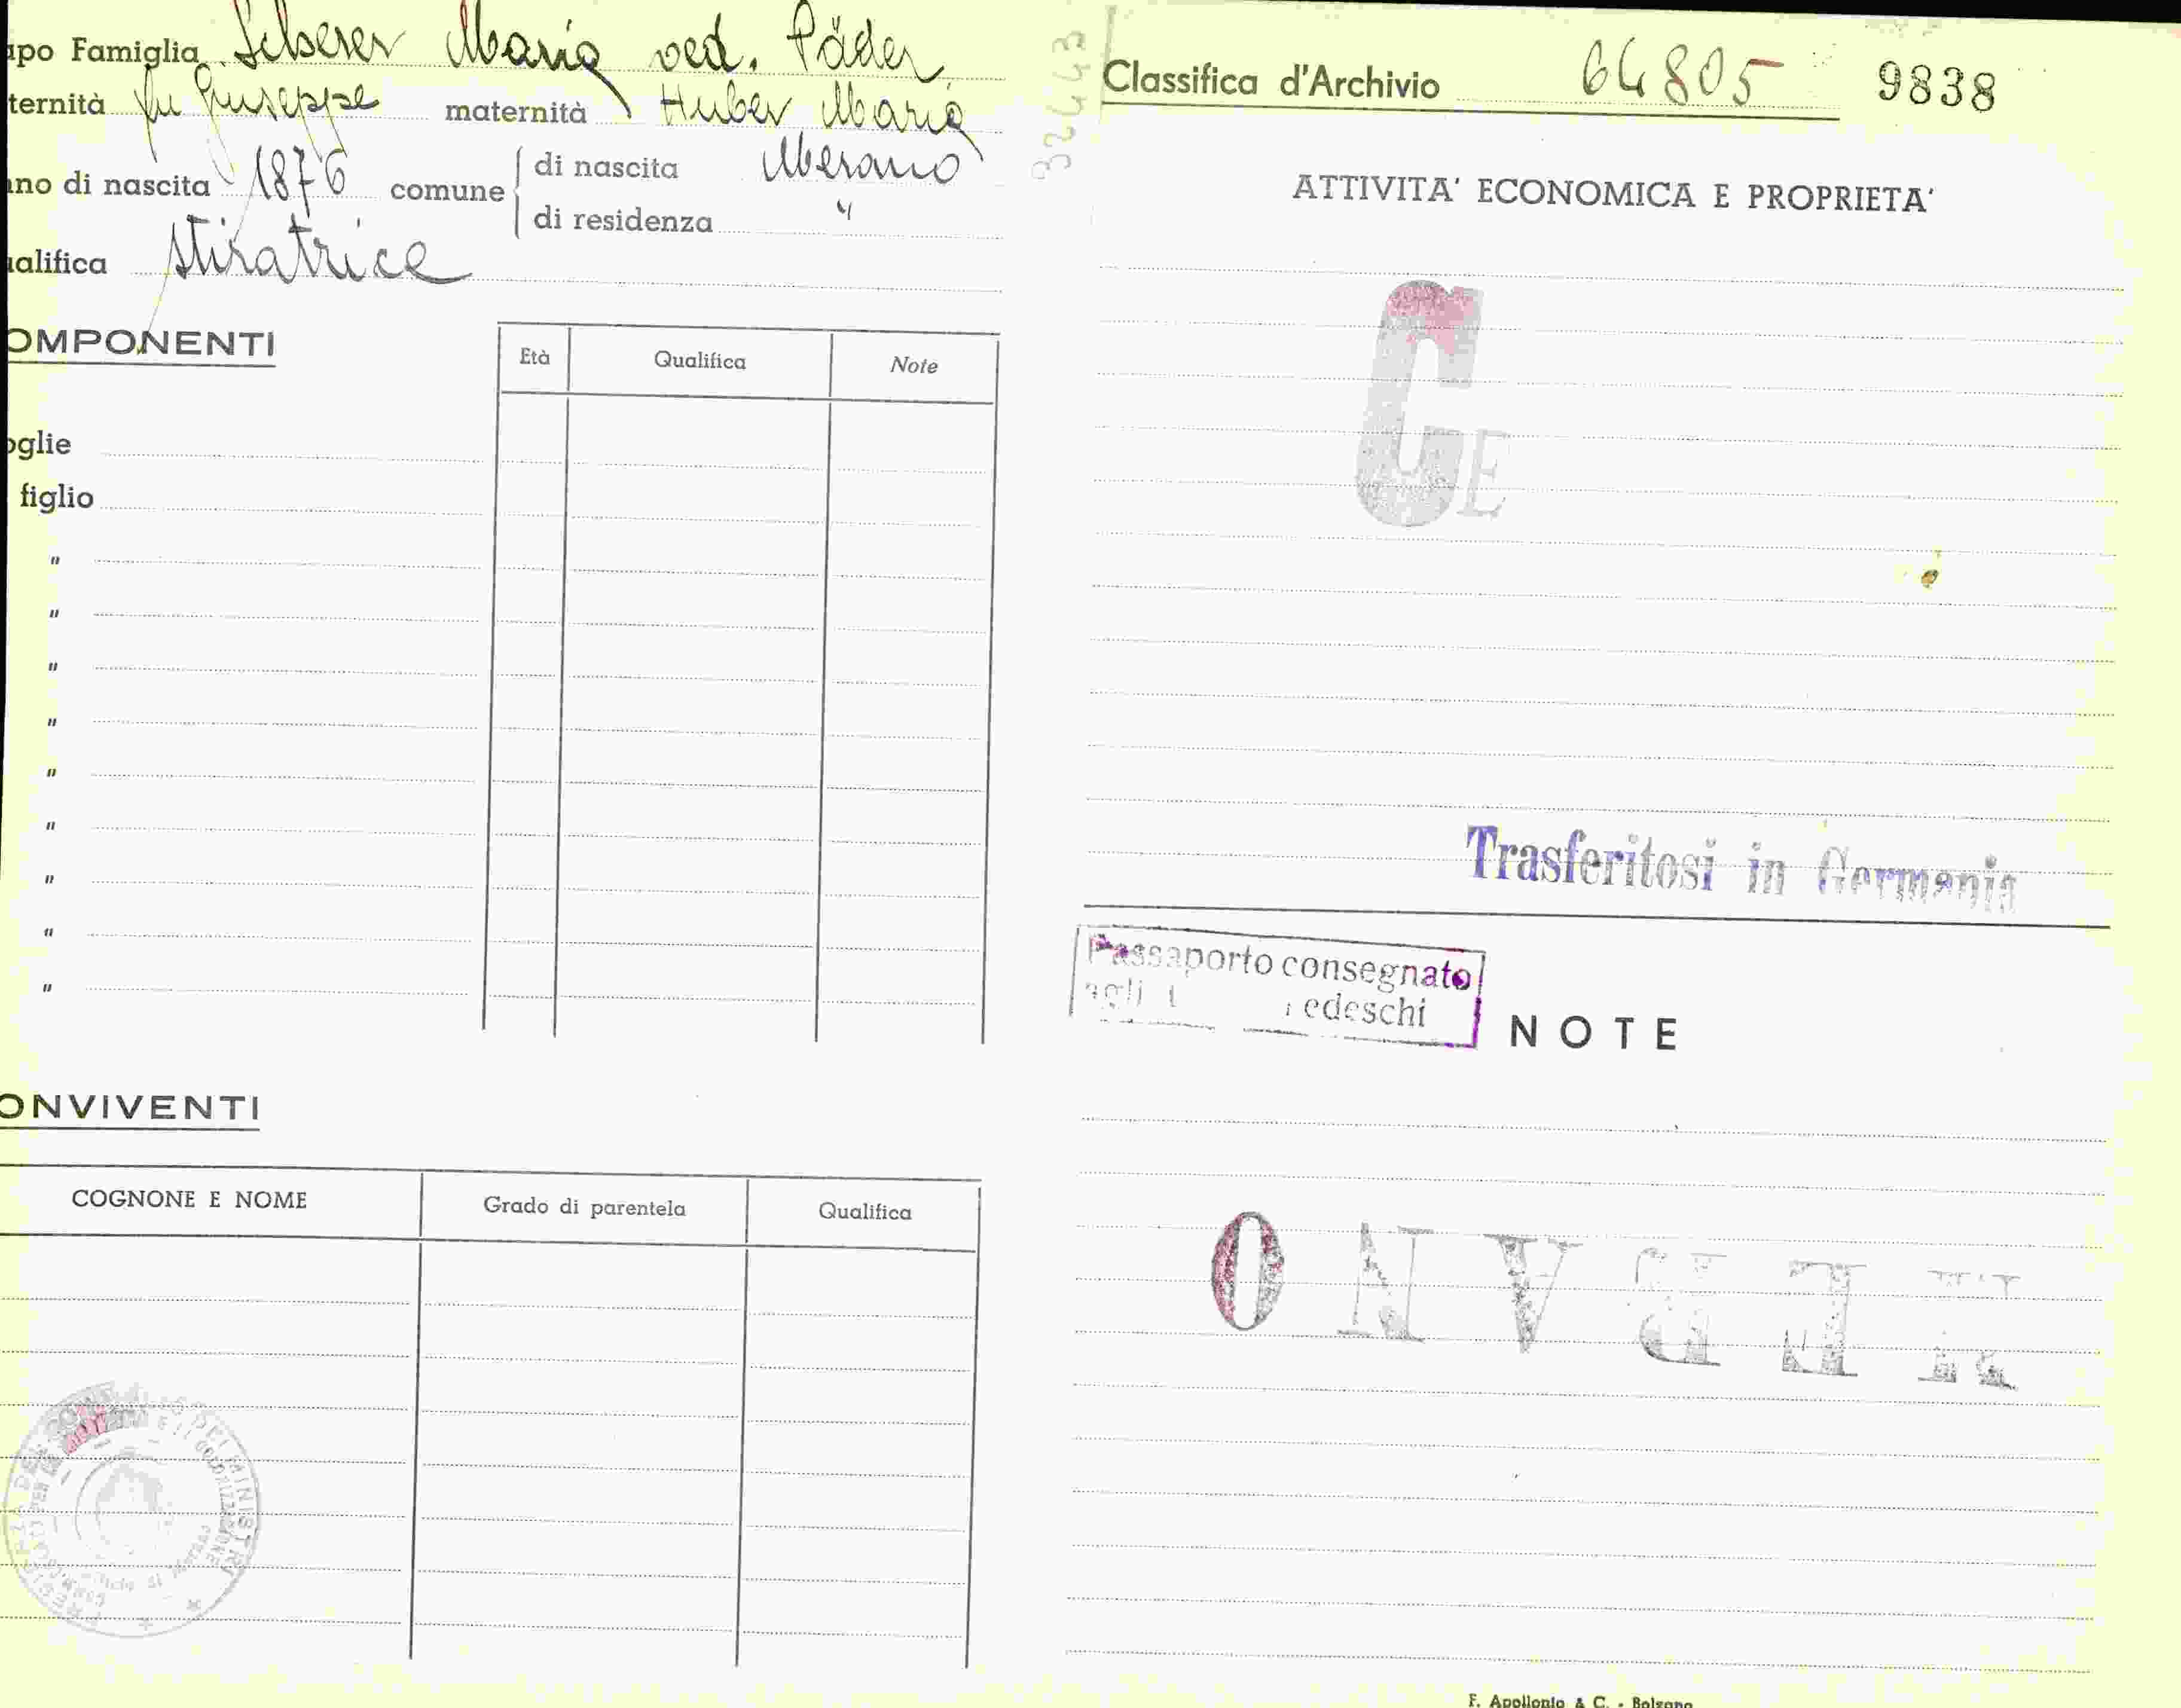 apo Famiglia Scherer Maria ved. Päder
ternità fu Giuseppe maternità Huber Maria
nno di nascita 1876 comune di nascita Merano
di residenza "
ualifica stiratrice
OMPONENTI
Età Qualifica Note
oglie
figlio
"
"
"
"
"
"
"
"
"
ONVIVENTI
COGNONE E NOME Grado di parentela Qualifica
Classifica d'Archivio 64805 9838
ATTIVITA' ECONOMICA E PROPRIETA'
C E
Trasferitosi in Germania
Passaporto consegnato
agli tedeschi
NOTE
MERANO
F. Apollonio & C. - Bolzano